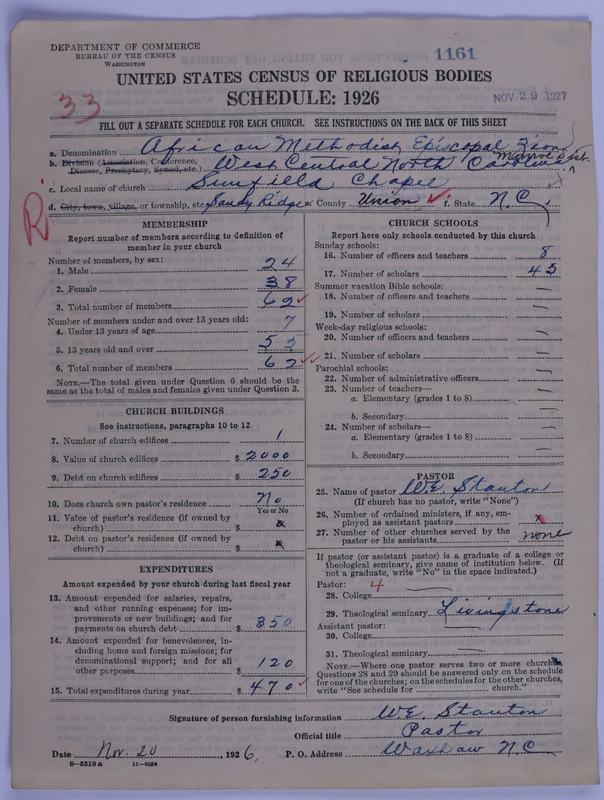 DEPARTMENT OF COMMERCE
BUREAU OF THE CENSUS
WASHINGTON
1161
UNITED STATES CENSUS OF RELIGIOUS BODIES
SCHEDULE: 1926
NOV 29 1927
33
FILL OUT A SEPARATE SCHEDULE FOR EACH CHURCH. SEE INSTRUCTIONS ON THE BACK OF THIS SHEET
a. Denomination African Methodist Episcopal Zion
b. Division (Association, Conference, Diocese, Presbytery, Synod, etc.) West Central North Carolina Monroe Dist.
c. Local name of church Chapel
d. City, town, village, or township, etc. Sandy Ridge e. County Union f. State N.C.
R
MEMBERSHIP
Report number of members according to definition of
member in your church
Number of members, by sex:
1. Male 24
2. Female 38
3. Total number of members 62
Number of members under and over 13 years old:
4. Under 13 years of age 7
5. 13 years old and over 55
6. Total number of members 62
NOTE.—The total given under Question 6 should be
same as the total of males and females given under Question 3.
CHURCH BUILDINGS
See instructions, paragraphs 10 to 12
7. Number of church edifices 1
8. Value of church edifices $ 2000
9. Debt on church edifices $ 250
10. Does church own pastor's residence No
Yes or No
11. Value of pastor's residence (if owned by
church) $ x
12. Debt on pastor's residence (if owned by
church) $ x
EXPENDITURES
Amount expended by your church during last fiscal year
13. Amount expended for salaries, repairs,
and other running expenses; for im-
provements or new buildings; and for
payments on church debt $ 350
14. Amount expended for benevolences, in-
cluding home and foreign missions; for
denominational support; and for all
other purposes $ 120
15. Total expenditures during year $ 470
CHURCH SCHOOLS
Report here only schools conducted by this church
Sunday schools:
16. Number of officers and teachers 8
17. Number of scholars 45
Summer vacation Bible schools:
18. Number of officers and teachers —
19. Number of scholars —
Week-day religious schools:
20. Number of officers and teachers —
21. Number of scholars —
Parochial schools:
22. Number of administrative officers —
23. Number of teachers—
a. Elementary (grades 1 to 8) —
b. Secondary —
24. Number of scholars—
a. Elementary (grades 1 to 8) —
b. Secondary —
PASTOR
25. Name of pastor W.E. Stanton
(If church has no pastor, write "None")
26. Number of ordained ministers, if any, em-
ployed as assistant pastors x
27. Number of other churches served by the
pastor or his assistants none
If pastor (or assistant pastor) is a graduate of a college or
theological seminary, give name of institution below. (If
not a graduate, write "No" in the space indicated.)
Pastor: 4
28. College —
29. Theological seminary Livingstone
Assistant pastor:
30. College —
31. Theological seminary —
NOTE.—Where one pastor serves two or more churches,
Questions 28 and 29 should be answered only on the schedule
for one of the churches; on the schedules for the other churches,
write "See schedule for church."
Signature of person furnishing information W.E. Stanton
Official title Pastor
Date Nov. 20, 1926. P. O. Address Waxhaw N C
8-5513 a 11-9084